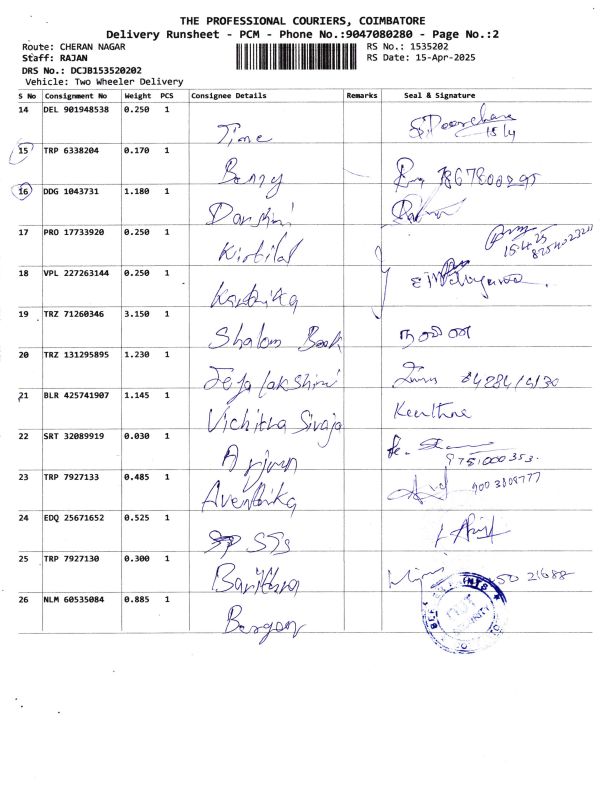 THE PROFESSIONAL COURIERS, COIMBATORE
Delivery Runsheet - PCM - Phone No.:9047080280 - Page No.:2
Route: CHERAN NAGAR
RS No.: 1535202
Staff: RAJAN
RS Date: 15-Apr-2025
DRS No.: DCJB153520202
Vehicle: Two Wheeler Delivery
S No Consignment No Weight PCS Consignee Details Remarks Seal & Signature
14 DEL 901948538 0.250 1
Time
15/4
15 TRP 6338204 0.170 1
Benzy
16 DDG 1043731 1.180 1
Darshini
17 PRO 17733920 0.250 1
Kirtilal
15.4.25
18 VPL 227263144 0.250 1
Karthika
19 TRZ 71260346 3.150 1
Shalom Book
20 TRZ 131295895 1.230 1
Jeja lakshmi
21 BLR 425741907 1.145 1
Vichitha Sivaja
Keerthna
22 SRT 32089919 0.030 1
Arjun
9751000353.
23 TRP 7927133 0.485 1
Aventhika
24 EDQ 25671652 0.525 1
SSS
25 TRP 7927130 0.300 1
26 NLM 60535084 0.885 1
SECURITY